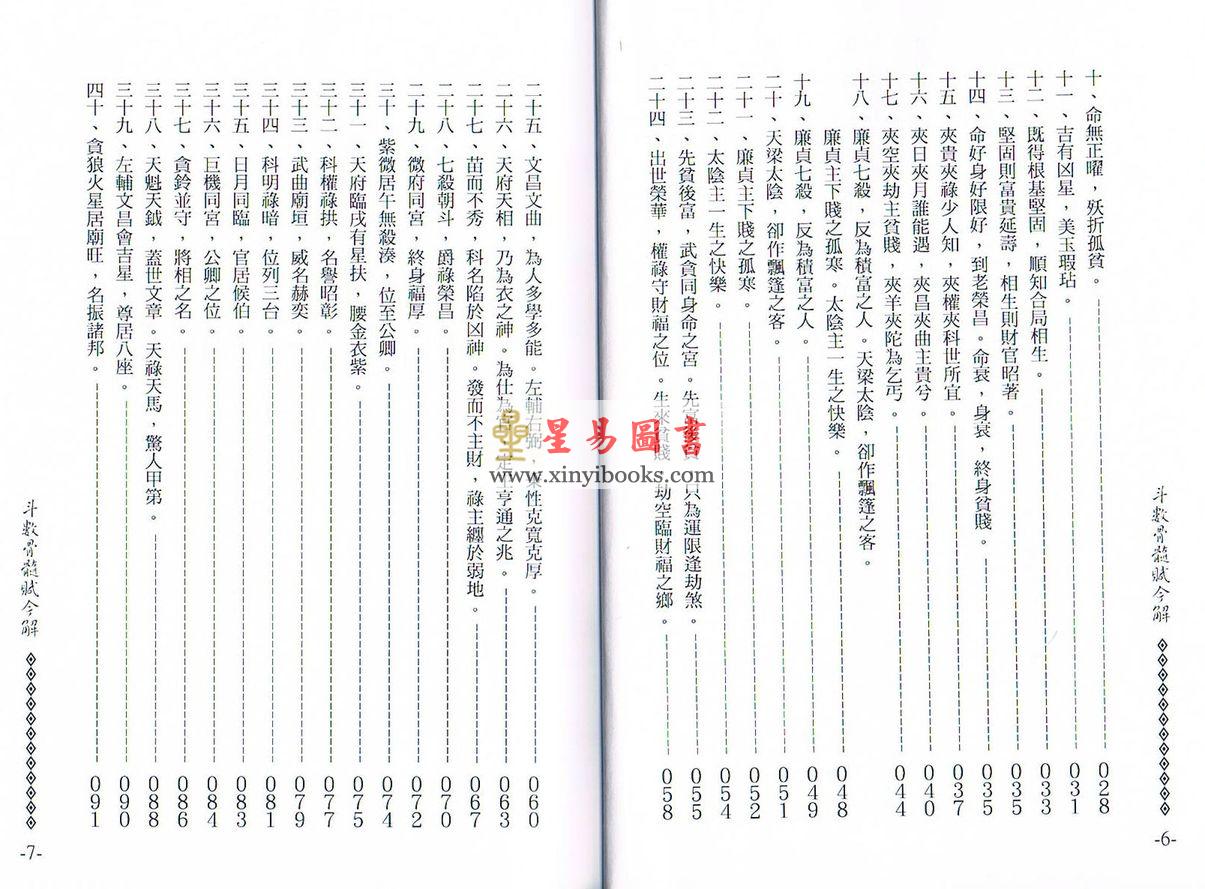 斗數骨髓賦今解
十、命無正曜，殀折孤貧。 028
十一、吉有凶星，美玉瑕玷。 031
十二、既得根基堅固，順知合局相生。 033
十三、堅固則富貴延壽，相生則財官昭著。 035
十四、命好身好限好，到老榮昌。命衰，身衰，終身貧賤。 035
十五、夾貴夾祿少人知，夾權夾科世所宜。 037
十六、夾日夾月誰能遇，夾昌夾曲主貴兮。 040
十七、夾空夾劫主貧賤，夾羊夾陀為乞丐。 044
十八、廉貞七殺，反為積富之人。天梁太陰，卻作飄篷之客。
廉貞主下賤之孤寒。太陰主一生之快樂。 048
十九、廉貞七殺，反為積富之人。 049
二十、天梁太陰，卻作飄篷之客。 051
二十一、廉貞主下賤之孤寒。 052
二十二、太陰主一生之快樂。 054
二十三、先貧後富，武貪同身命之宮。先富後貧，只為運限逢劫煞。 055
二十四、出世榮華，權祿守財福之位。生來貧賤，劫空臨財福之鄉。 058
-6-
二十五、文昌文曲，為人多學多能。左輔右弼，秉性克寬克厚。 060
二十六、天府天相，乃為衣之神。為仕為官，定主亨通之兆。 063
二十七、苗而不秀，科名陷於凶神。發而不主財，祿主纏於弱地。 067
二十八、七殺朝斗，爵祿榮昌。 070
二十九、微府同宮，終身福厚。 072
三十、紫微居午無殺湊，位至公卿。
三十一、天府臨戌有星扶，腰金衣紫。 075
三十二、科權祿拱，名譽昭彰。 077
三十三、武曲廟垣，威名赫奕。 079
三十四、科明祿暗，位列三台。 081
三十五、日月同臨，官居候伯。 083
三十六、巨機同宮，公卿之位。 084
三十七、貪鈴並守，將相之名。 086
三十八、天魁天鉞，蓋世文章。天祿天馬，驚人甲第。 088
三十九、左輔文昌會吉星，尊居八座。 090
四十、貪狼火星居廟旺，名振諸邦。 091
斗數骨髓賦今解
-7-
星易圖書
www.xinyibooks.com